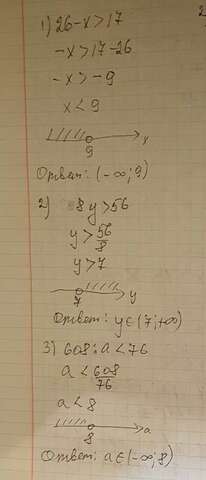 1) 26-x>17
-x>17-26
-x>-9
x<9
9 x
Ответ: (-∞; 9)
2) 8y>56
y>56/8
y>7
7 y
Ответ: y∈(7;+∞)
3) 608:a<76
a<608/76
a<8
8 a
Ответ: a∈(-∞;8)